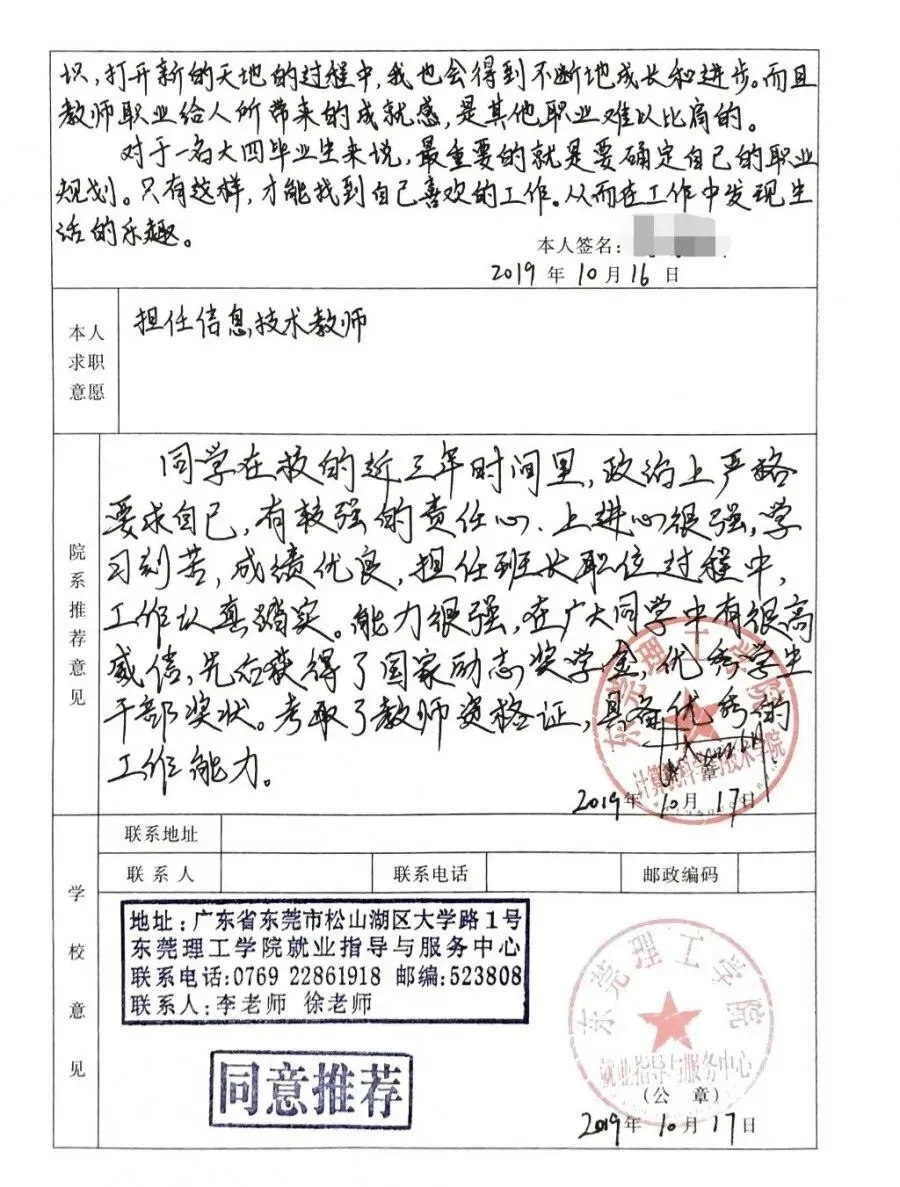 识，打开新的天地的过程中，我也会得到不断地成长和进步。而且
教师职业给人所带来的成就感，是其他职业难以比肩的。
对于一名大四毕业生来说，最重要的就是要确定自己的职业
规划。只有这样，才能找到自己喜欢的工作。从而在工作中发现生
活的乐趣。
本人签名：
2019 年 10 月 16 日
本人
求职
意愿
担任信息技术教师
院系推荐意见
同学在校的近三年时间里，政治上严格
要求自己，有较强的责任心、上进心很强，学
习刻苦，成绩优良，担任班长职位过程中，
工作认真踏实。能力很强，在广大同学中有很高
威信，先后获得了国家励志奖学金，优秀学生
干部奖状。考取了教师资格证，具备优秀的
工作能力。
东莞理工学院
计算机科学与技术学院
章
2019 年 10 月 17 日
学校意见
联系地址
联系人
联系电话
邮政编码
地址：广东省东莞市松山湖区大学路1号
东莞理工学院就业指导与服务中心
联系电话:0769 22861918 邮编:523808
联系人:李老师 徐老师
同意推荐
东莞理工学院
就业指导与服务中心
（公 章）
2019 年 10 月 17 日